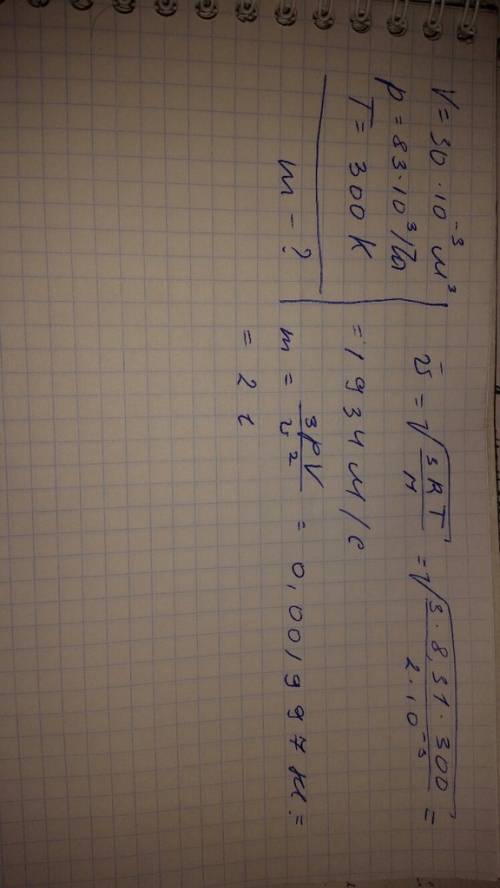 V = 30 · 10⁻³ м³
p = 83·10³ Па
T = 300 К
m - ?
v̄ = √(3RT/M) = √(3·8,31·300 / 2·10⁻³) =
= 1934 м/с
m = 3pV/v² = 0,001997 кг =
= 2 г